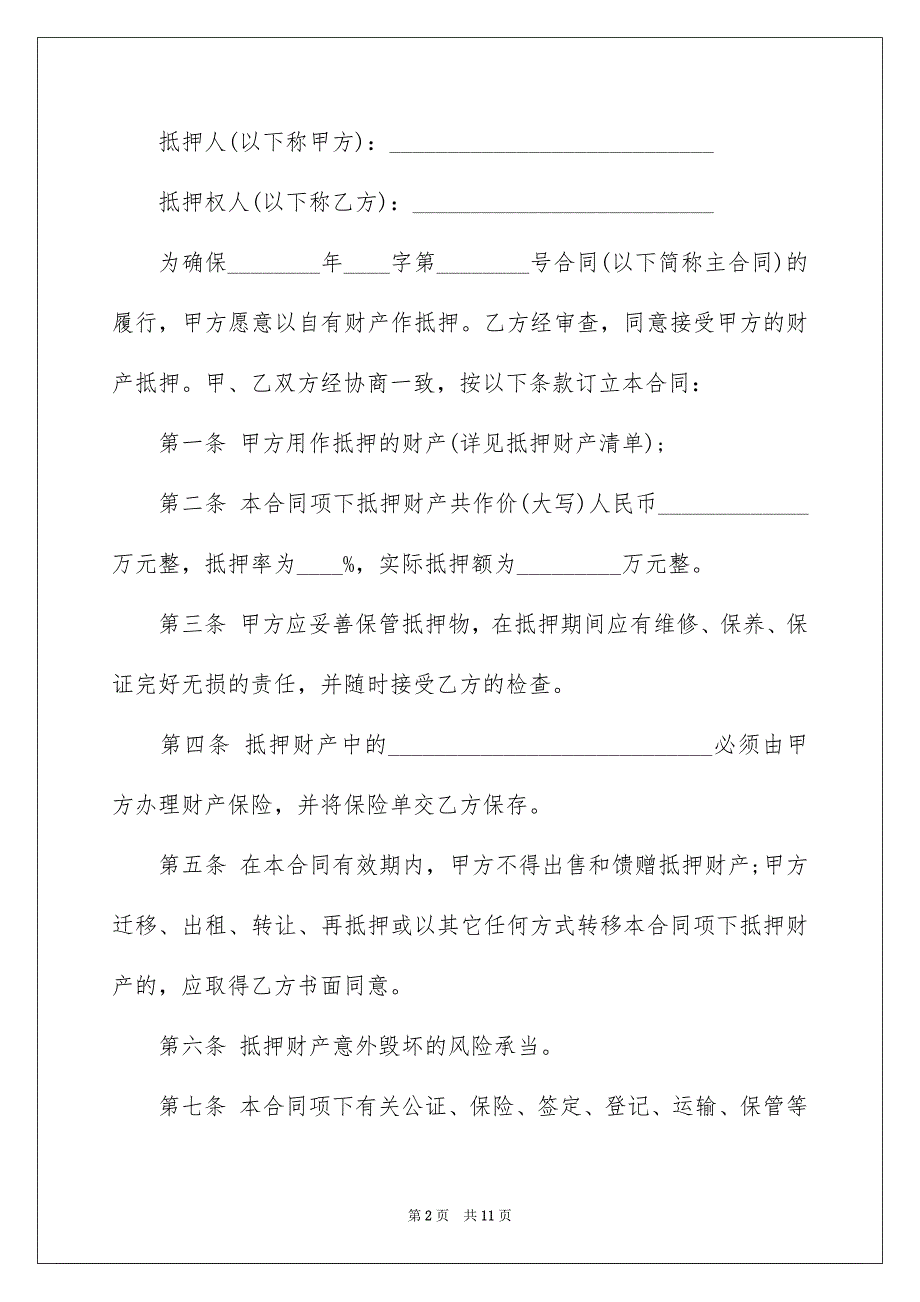 抵押人(以下称甲方)：____________________________
抵押权人(以下称乙方)：__________________________
为确保________年____字第________号合同(以下简称主合同)的
履行，甲方愿意以自有财产作抵押。乙方经审查，同意接受甲方的财
产抵押。甲、乙双方经协商一致，按以下条款订立本合同：
第一条 甲方用作抵押的财产(详见抵押财产清单);
第二条 本合同项下抵押财产共作价(大写)人民币_____________
万元整，抵押率为____%，实际抵押额为_________万元整。
第三条 甲方应妥善保管抵押物，在抵押期间应有维修、保养、保
证完好无损的责任，并随时接受乙方的检查。
第四条 抵押财产中的____________________________必须由甲
方办理财产保险，并将保险单交乙方保存。
第五条 在本合同有效期内，甲方不得出售和馈赠抵押财产;甲方
迁移、出租、转让、再抵押或以其它任何方式转移本合同项下抵押财
产的，应取得乙方书面同意。
第六条 抵押财产意外毁坏的风险承当。
第七条 本合同项下有关公证、保险、签定、登记、运输、保管等
第 2 页 共 11 页